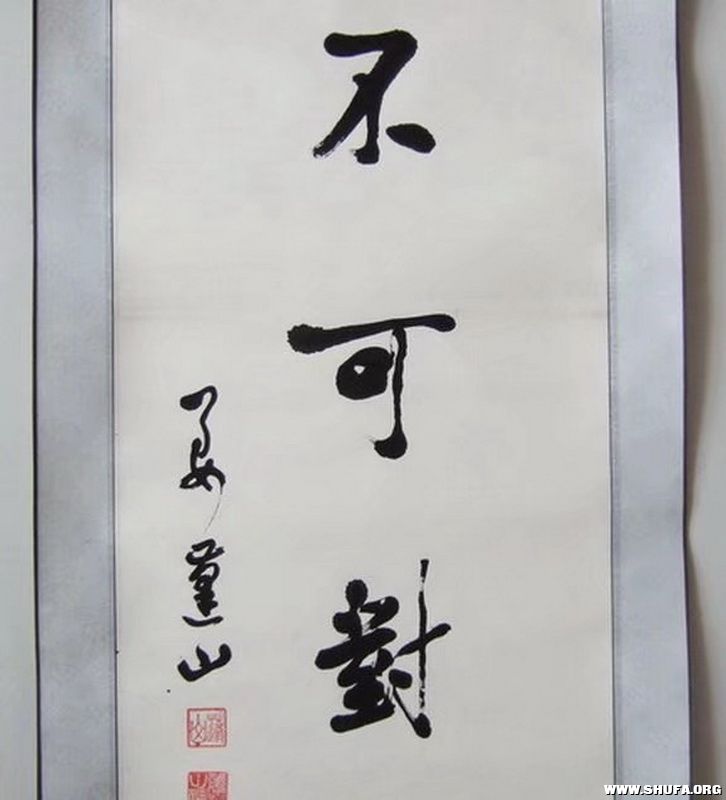 不可對
姜薰山
WWW.SHUFA.ORG